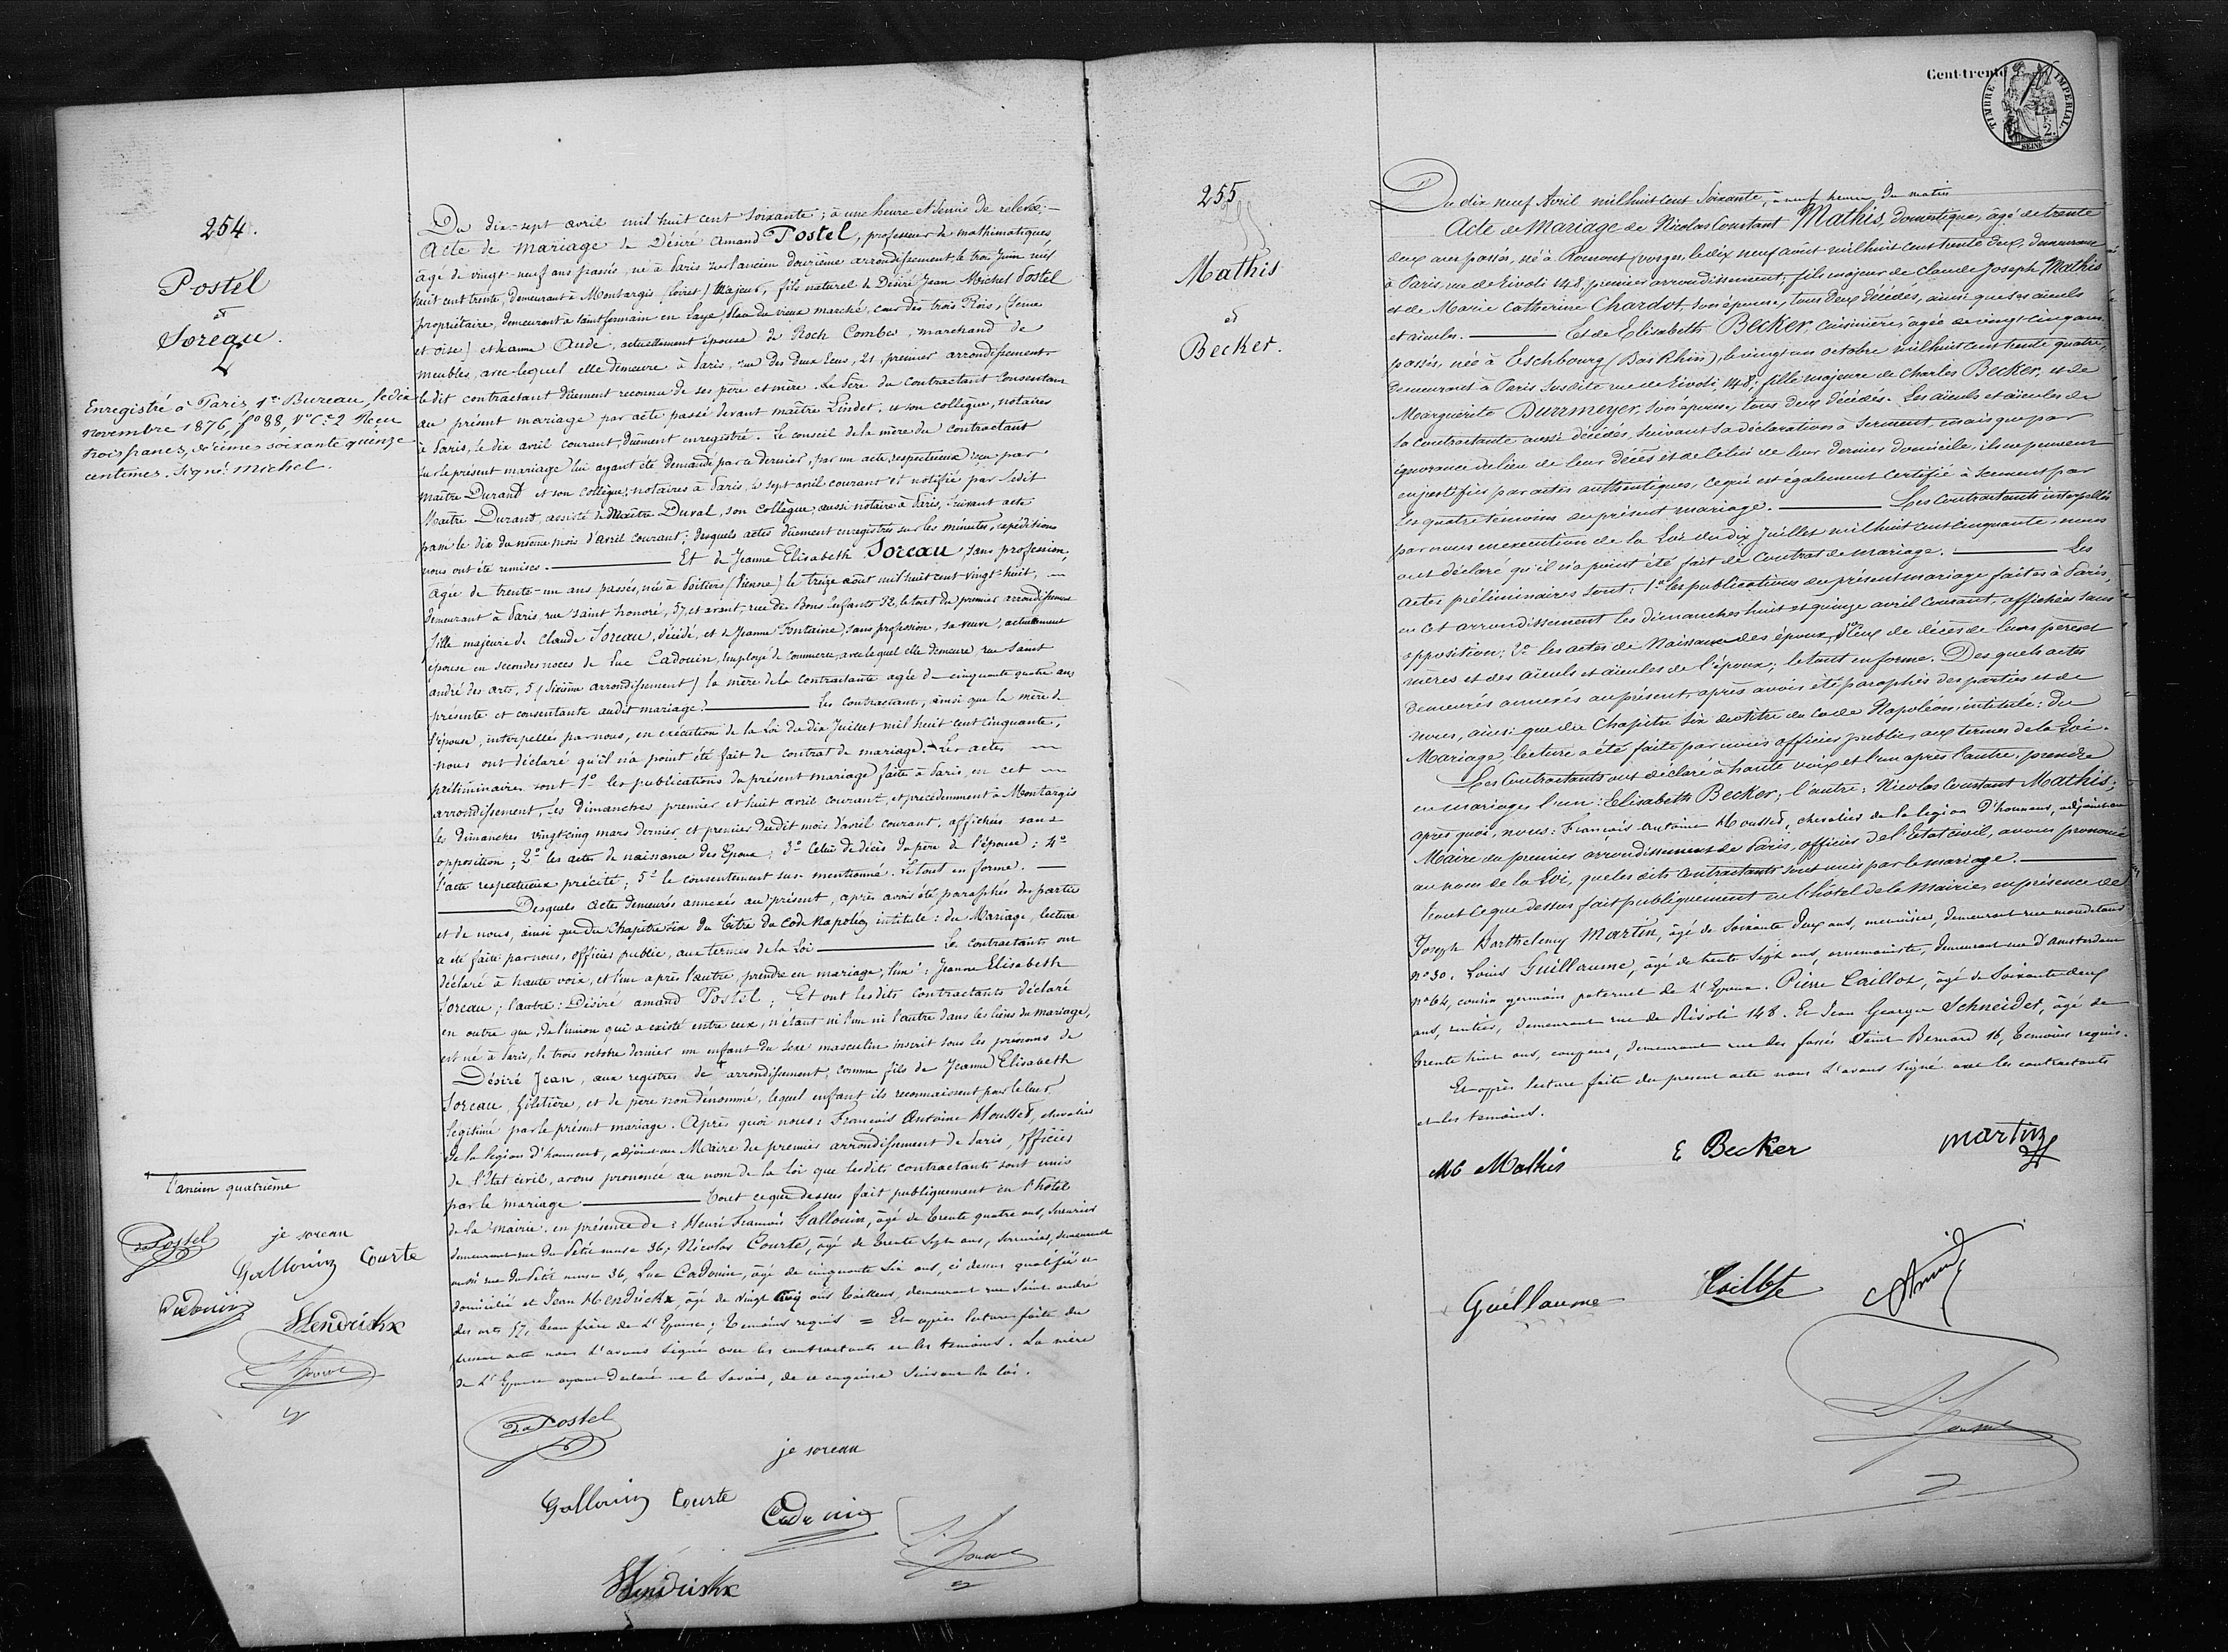 254.
Postel
et
Soreau.
Enregistré à Paris, 1er Bureau, le dix
novembre 1876, fo 88, Vo Ce 2 Reçu
trois francs, décimes soixante quinze
centimes. Signé Michel.
Du dix-sept avril mil huit cent soixante; à une heure et demie de relevée;
Acte de mariage de Désiré Amand Postel, professeur de mathématiques
âgé de vingt-neuf ans passés, né à Paris sur l'ancien douzième arrondissement le trois Juin mil
huit cent trente, demeurant à Montargis (Loiret) Majeur, fils naturel de Désiré Jean Michel Postel
propriétaire, demeurant à Saint Germain en Laye, place du vieux marché, cour des trois Rois, (Seine
et oise) et Jeanne Aude, actuellement épouse de Roch Combes, marchand de
meubles, avec lequel elle demeure à Paris, rue des Deux Ecus, 21, premier arrondissement
le dit contractant dûement reconnu de ses père et mère. Le Père du contractant Consentant
au présent mariage par acte passé devant maître Lindet, et son collègue, notaires
à Paris, le dix avril courant, dûement enregistré. Le conseil de la mère du contractant
sur le présent mariage lui ayant été demandé par ce dernier, par un acte respectueux reçu par
maître Durant et son collègue, notaires à Paris, le sept avril courant et notifié par ledit
Maître Durant, assisté de Maître Duval, son collègue aussi notaire à Paris, suivant acte
passé le dix du même mois d'avril courant; desquels actes dûement enregistrés sur les minutes, expéditions
nous ont été remises. — Et de Jeanne Elisabeth Soreau, sans profession,
agée de trente-un ans passés, née à Poitiers (Vienne) le treize août mil huit cent vingt-huit,
demeurant à Paris rue saint honoré, 57, et avant, rue des Bons Enfants 32, le tout du premier arrondissement
fille majeure de Claude Soreau, décédé, et de Jeanne Fontaine, sans profession, sa veuve, actuellement
épouse en secondes noces de Luc Cadouin, employé de Commerce, avec lequel elle demeure, rue Saint
andré des arts, 57 (Sixième arrondissement) la mère de la contractante agée de cinquante quatre ans
présente et consentante audit mariage. — Les Contractants, ainsi que la mère de
l'épouse, interpellés par nous, en exécution de la Loi du dix Juillet mil huit cent cinquante,
nous ont déclaré qu'il n'a point été fait de contrat de mariage. — Les actes
préliminaires sont 1o les publications du présent mariage faite à Paris, en cet
arrondissement, les dimanches premier et huit avril courant, et précédemment à Montargis
les dimanches vingt-cinq mars dernier, et premier dudit mois d'avril courant, affichées sans
opposition; 2o les actes de naissance des Epoux; 3o Celui de décès du père de l'épouse; 4o
l'acte respectueux précité; 5o le consentement sus-mentionné. Le tout en forme. —
Desquels acte demeurés annexés au présent, après avoir été paraphés des parties
et de nous, ainsi que du Chapitre six du Titre du Code Napoléon intitulé: du Mariage, lecture
a été faite par nous, officier public, aux termes de la Loi — Les contractants ont
déclaré à haute voix, et l'un après l'autre prendre en mariage, l'un: Jeanne Elisabeth
Soreau; l'autre: Désiré amand Postel; Et ont lesdits contractants déclaré
en outre que, de l'union qui a existé entre eux, n'étant ni l'un ni l'autre dans les liens du mariage,
est né à Paris, le trois octobre dernier un enfant du sexe masculin inscrit sous les prénoms de
Désiré Jean, aux registres de arrondissement, comme fils de Jeanne Elisabeth
Soreau, Giletière, et de père non dénommé, lequel enfant ils reconnaissent pour le leur
légitimé par le présent mariage. Après quoi nous: François Antoine Housset, chevalier
de la légion d'honneur, adjoint au Maire du premier arrondissement de Paris, officier
de l'Etat civil, avons prononcé au nom de la Loi que lesdits contractants sont unis
par le mariage — tout ce que dessus fait publiquement en l'hôtel
de la mairie. en présence de: Henri François Gallouin, âgé de trente quatre ans, serrurier
demeurant rue du Petit musc 36; Nicolas Courte, âgé de trente sept ans, serrurier, demeurant
aussi rue du Petit musc 36, Luc Cadouin, âgé de cinquante six ans, ci dessus qualifié et
domicilié et Jean Hendrickx, âgé de vingt cinq ans tailleur, demeurant rue Saint andré
des arts 57, beau frère de l'Epouse; témoins requis = Et après lecture faite du
présent acte nous l'avons signé avec les contractants et les témoins. La mère
de l'Epouse ayant déclaré ne le savoir, de ce enquise suivant la loi.
l'ancien quatrième
da Postel
je soreau
Gallouin Courte
Cadouin
Hendrickx
da Postel
je soreau
Gallouin Courte
Cadouin
Hendrickx
Cent-trente
TIMBRE IMPERIAL
2.
SEINE
255
Mathis
et
Becker.
Du dix neuf Avril mil huit cent Soixante, à neuf heures du matin
Acte de Mariage de Nicolas Constant Mathis, domestique, âgé de trente
deux ans passés, né à Romont, vosges, le dix neuf août mil huit cent trente deux, demeurant
à Paris, rue de Rivoli 148, premier arrondissement, fils majeur de Claude Joseph Mathis
et de Marie Catherine Chardot, son épouse, tous deux décédés, ainsi que ses aïeuls
et aïeules. — Et de Elisabeth Becker, cuisinière, agée de vingt cinq ans
passés, née à Eschbourg (Bas Rhin), le vingt un octobre mil huit cent trente quatre,
demeurant à Paris susdite rue de Rivoli, 148; fille majeure de Charles Becker, et de
Marguerite Durrmeyer, son épouse, tous deux décédés. Les aïeuls et aïeules de
la contractante aussi décédés, suivant sa déclaration à serment, mais que par
ignorance du lieu de leur décès et de celui de leur dernier domicile, ils ne peuvent
en justifier par actes authentiques, ce qui est également certifié à serment par
les quatre témoins du présent mariage. — Les Contractants interpellés
par nous en execution de la Loi du dix Juillet mil huit cent cinquante, nous
ont déclaré qu'il n'a point été fait de Contrat de mariage. — Les
actes préliminaires sont: 1o Les publications du présent mariage faites à Paris,
en cet arrondissement les dimanches huit et quinze avril courant, affichées sans
opposition; 2o les actes de Naissance des époux, 3o ceux de décès de leurs pères et
mères et des aïeuls et aïeules de l'époux; le tout en forme. Desquels actes
demeurés annexés au présent, après avoir été paraphés des parties et de
nous, ainsi que du Chapitre six du titre du Code Napoléon, intitulé: du
Mariage, lecture a été faite par nous officier public, aux termes de la Loi.
Les Contractants ont déclaré à haute voix et l'un après l'autre, prendre
en mariage, l'un: Elisabeth Becker; l'autre: Nicolas Constant Mathis;
après quoi, nous: François antoine Housset, chevalier de la légion D'honneur, adjoint au
Maire du premier arrondissement de Paris, officier de l'Etat civil, avons prononcé
au nom de la Loi, que les dits Contractants sont unis par le mariage. —
tout ce que dessus fait publiquement en l'hôtel de la Mairie, en présence de
Joseph Barthelemy Martin, âgé de soixante deux ans, menuisier, demeurant rue mondetour
no 30. Louis Guillaume, âgé de trente sept ans, ornemaniste, demeurant rue d'Amsterdam
no 64, cousin germain paternel de l'Epoux. Pierre Caillot, âgé de soixante deux
ans, rentier, demeurant rue de Rivoli 148. Et Jean George Schneider, âgé de
trente huit ans, coupeur, demeurant rue des fossés Saint Bernard 16, témoins requis.
Et après lecture faite du present acte nous l'avons signé avec les contractants
et les témoins.
Mathis
E Becker
Martin
Guillaume
Caillot